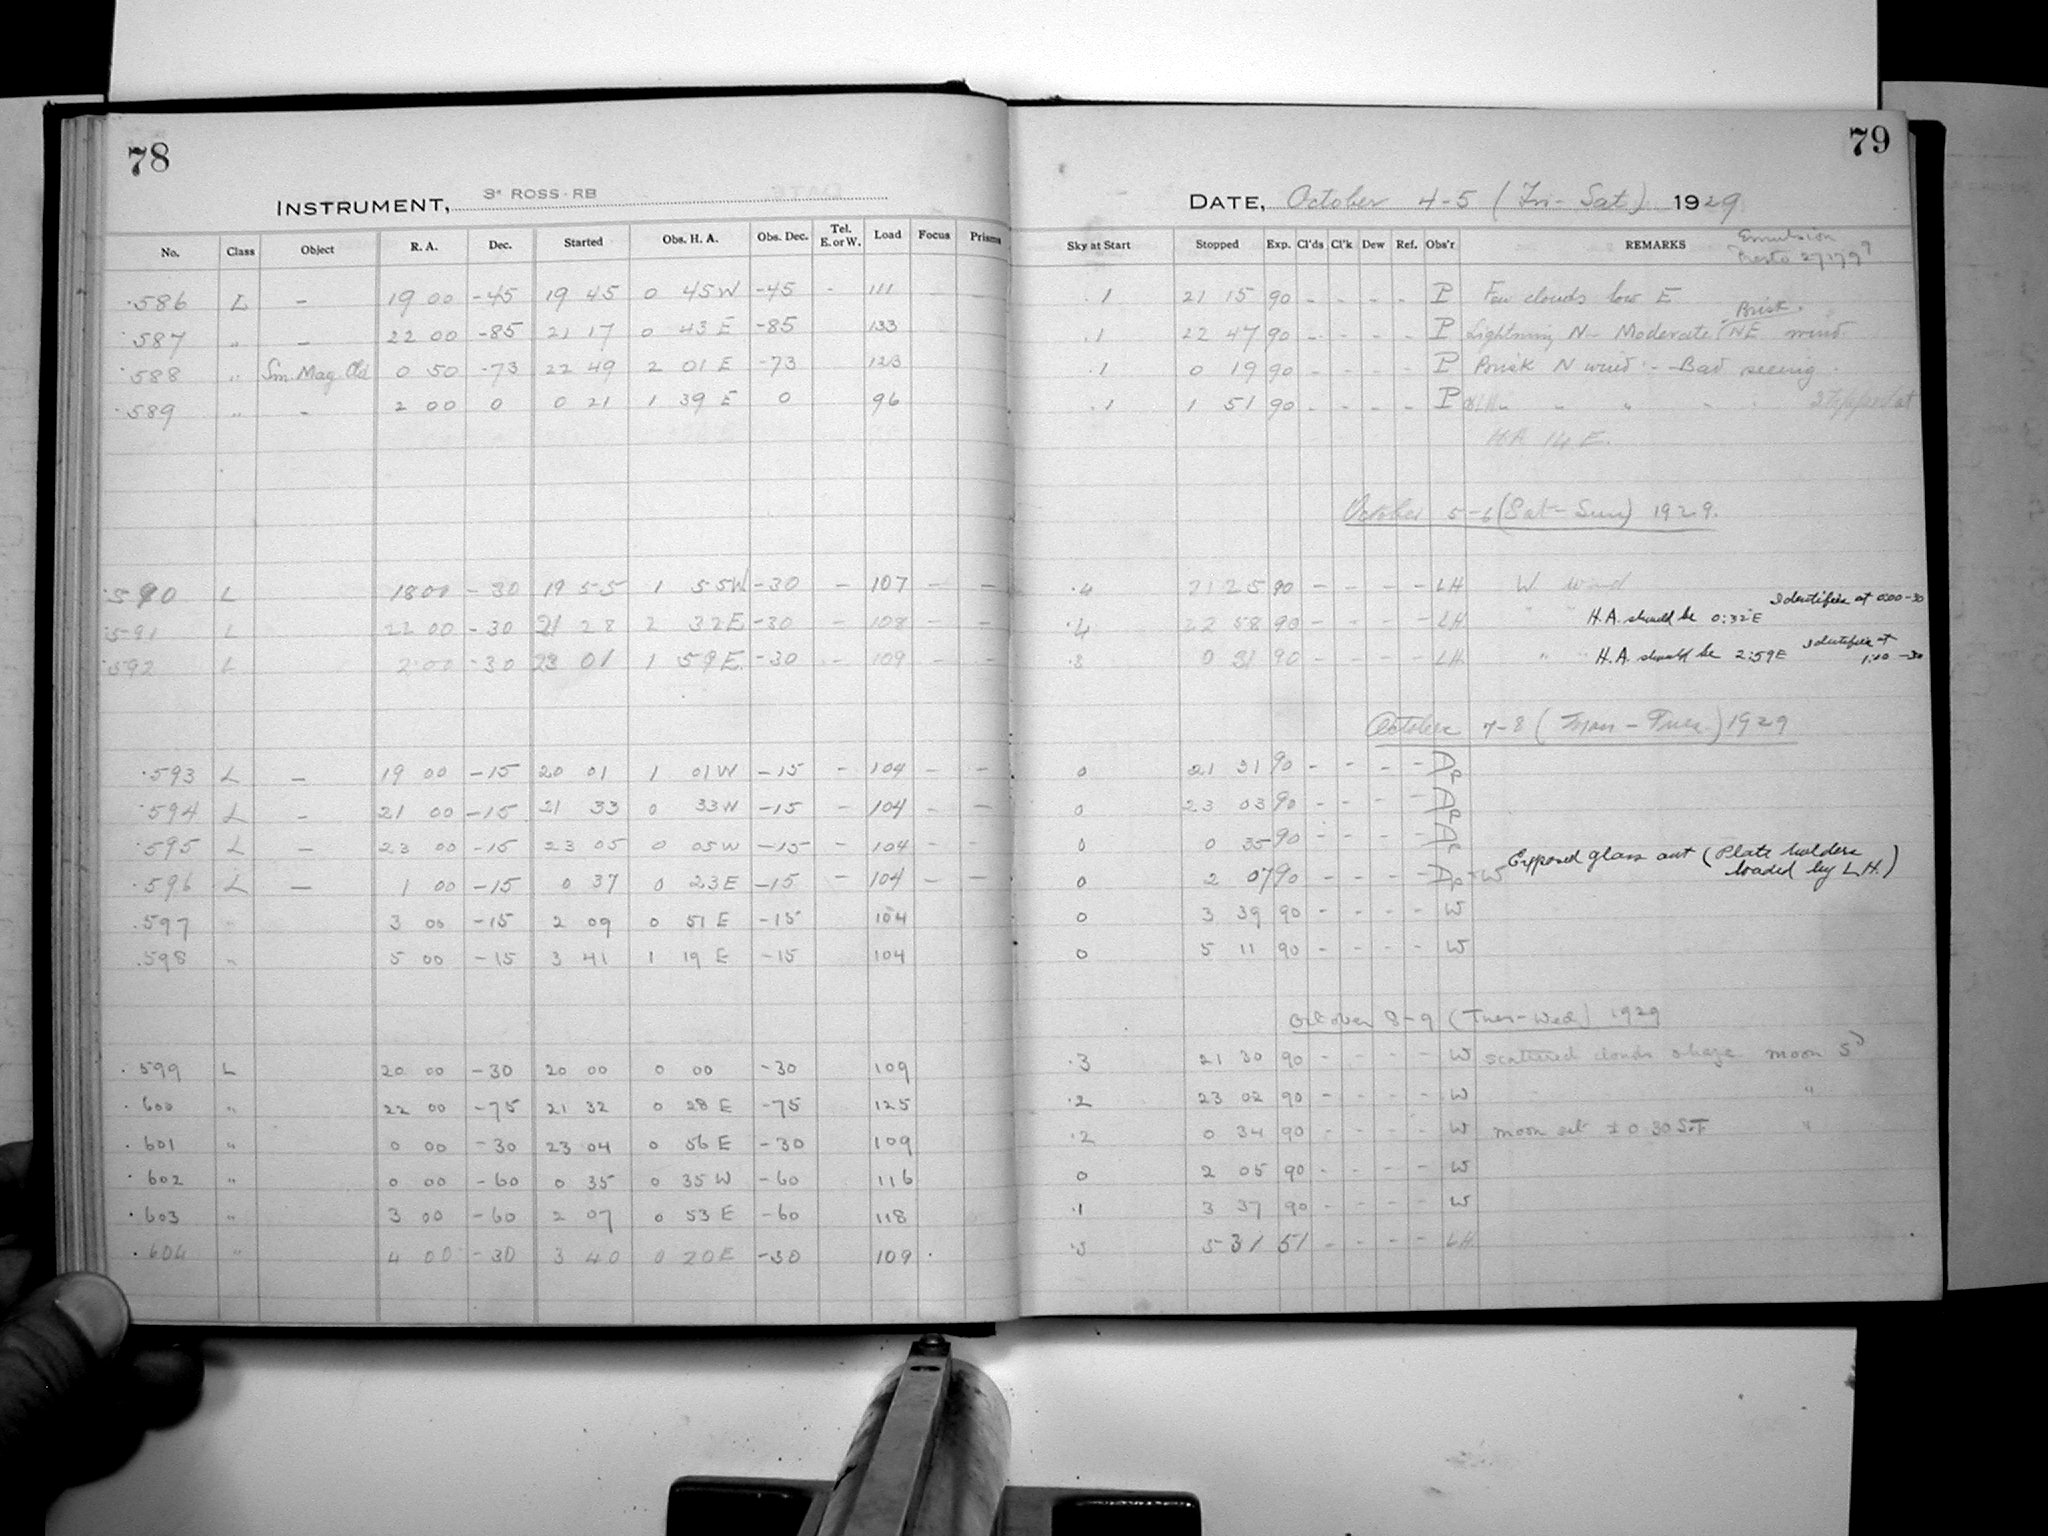 78
INSTRUMENT, 3" ROSS-RB
No. Class Object R. A. Dec. Started Obs. H. A. Obs. Dec. Tel. E. or W. Load Focus Prisms
.586 L – 19 00 -45 19 45 0 45W -45 - 111
.587 " – 22 00 -85 21 17 0 43 E -85 133
.588 " Sm. Mag. Cld 0 50 -73 22 49 2 01 E -73 123
.589 " – 2 00 0 0 21 1 39 E 0 96
.590 L 18 00 -30 19 55 1 55W -30 – 107 – –
.591 L 22 00 -30 21 28 2 32E -30 – 108 – –
.592 L 2 00 -30 23 01 1 59E -30 – 109 – –
.593 L – 19 00 -15 20 01 1 01W -15 – 104 – –
.594 L – 21 00 -15 21 33 0 33W -15 – 104 – –
.595 L – 23 00 -15 23 05 0 05W -15 – 104 – –
.596 L – 1 00 -15 0 37 0 23E -15 – 104 – –
.597 " 3 00 -15 2 09 0 51 E -15 104
.598 " 5 00 -15 3 41 1 19 E -15 104
.599 L 20 00 -30 20 00 0 00 -30 109
.600 " 22 00 -75 21 32 0 28 E -75 125
.601 " 0 00 -30 23 04 0 56 E -30 109
.602 " 0 00 -60 0 35 0 35 W -60 116
.603 " 3 00 -60 2 07 0 53 E -60 118
.604 " 4 00 -30 3 40 0 20E -30 109
79
DATE, October 4-5 (Fri-Sat) 1929
Sky at Start Stopped Exp. Cl'ds Cl'k Dew Ref. Obs'r REMARKS Emulsion
Presto 27179?
.1 21 15 90 - - - - P Few clouds low E
Brisk.
.1 22 47 90 - - - - P Lightning N– Moderate NE wind
.1 0 19 90 - - - - P Brisk N wind – Bad seeing.
.1 1 51 90 - - - - P " " " Stopped at
H.A. 14 E.
October 5-6 (Sat-Sun) 1929.
.4 21 25 90 – – – – LH W wind
Identifies at 0:00 -30
.4 22 58 90 – – – – LH " " H.A. should be 0:32 E
Identifies at
.3 0 31 90 – – – – LH " " H.A. should be 2:59E 1:00 -30
October 7-8 (Mon-Tues) 1929
0 21 31 90 - - - - Dp
0 23 03 90 - - - - Dp
0 0 35 90 - - - - Dp
0 2 07 90 - - - - Dp-W Exposed glass out (Plate holders
loaded by L.H.)
0 3 39 90 - - - - W
0 5 11 90 - - - - W
October 8-9 (Tues-Wed) 1929
.3 21 30 90 - - - - W scattered clouds & haze moon 5d
.2 23 02 90 - - - - W "
.2 0 34 90 - - - - W moon set ± 0 30 S.T. "
0 2 05 90 - - - - W
.1 3 37 90 - - - - W
.5 5 31 51 - - - - LH.